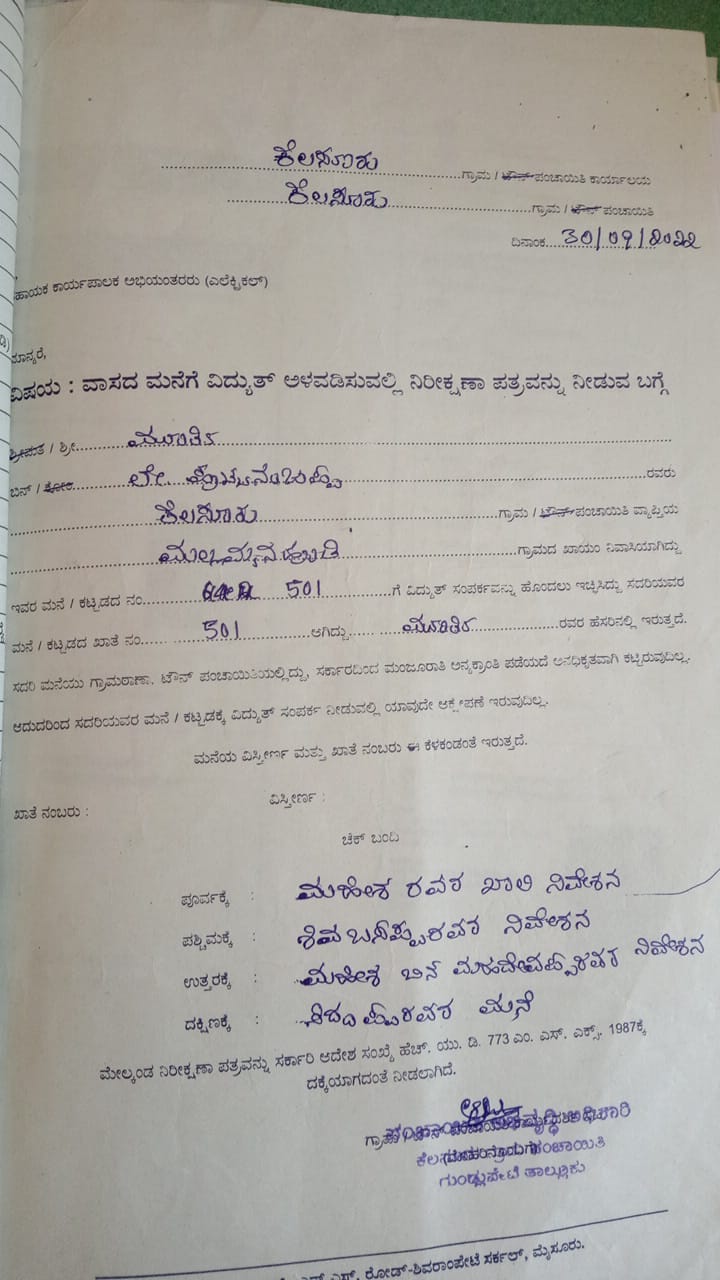 ಕೆಲಸೂರು ಗ್ರಾಮ / ಟೌನ್ ಪಂಚಾಯಿತಿ ಕಾರ್ಯಾಲಯ
ಕೆಲಸೂರು ಗ್ರಾಮ / ಟೌನ್ ಪಂಚಾಯಿತಿ
ದಿನಾಂಕ 30/09/2022
ಹಾಯಕ ಕಾರ್ಯಪಾಲಕ ಅಭಿಯಂತರರು (ಎಲೆಕ್ಟ್ರಿಕಲ್)
ಮಾನ್ಯರೆ,
ವಿಷಯ : ವಾಸದ ಮನೆಗೆ ವಿದ್ಯುತ್ ಅಳವಡಿಸುವಲ್ಲಿ ನಿರೀಕ್ಷಣಾ ಪತ್ರವನ್ನು ನೀಡುವ ಬಗ್ಗೆ
ಶ್ರೀಮತಿ / ಶ್ರೀ ಮೂರ್ತಿ
ಬಿನ್ / ಕೋಂ ಲೇ. ರವರು
ಕೆಲಸೂರು ಗ್ರಾಮ / ಟೌನ್ ಪಂಚಾಯಿತಿ ವ್ಯಾಪ್ತಿಯ
ಮಲ್ಲಮ್ಮನಹುಂಡಿ ಗ್ರಾಮದ ಖಾಯಂ ನಿವಾಸಿಯಾಗಿದ್ದು
ಇವರ ಮನೆ / ಕಟ್ಟಡದ ನಂ. 501 ಗೆ ವಿದ್ಯುತ್ ಸಂಪರ್ಕವನ್ನು ಹೊಂದಲು ಇಚ್ಛಿಸಿದ್ದು ಸದರಿಯವರ
ಮನೆ / ಕಟ್ಟಡದ ಖಾತೆ ನಂ. 501 ಆಗಿದ್ದು ಮೂರ್ತಿ ರವರ ಹೆಸರಿನಲ್ಲಿ ಇರುತ್ತದೆ.
ಸದರಿ ಮನೆಯು ಗ್ರಾಮಠಾಣಾ, ಟೌನ್ ಪಂಚಾಯಿತಿಯಲ್ಲಿದ್ದು, ಸರ್ಕಾರದಿಂದ ಮಂಜೂರಾತಿ ಅನ್ಯಕ್ರಾಂತಿ ಪಡೆಯದೆ ಅನಧಿಕೃತವಾಗಿ ಕಟ್ಟಿರುವುದಿಲ್ಲ.
ಆದುದರಿಂದ ಸದರಿಯವರ ಮನೆ / ಕಟ್ಟಡಕ್ಕೆ ವಿದ್ಯುತ್ ಸಂಪರ್ಕ ನೀಡುವಲ್ಲಿ ಯಾವುದೇ ಆಕ್ಷೇಪಣೆ ಇರುವುದಿಲ್ಲ.
ಮನೆಯ ವಿಸ್ತೀರ್ಣ ಮತ್ತು ಖಾತೆ ನಂಬರು ಈ ಕೆಳಕಂಡಂತೆ ಇರುತ್ತದೆ.
ಖಾತೆ ನಂಬರು : ವಿಸ್ತೀರ್ಣ :
ಚೆಕ್ ಬಂದಿ
ಪೂರ್ವಕ್ಕೆ : ಮಹೇಶ ರವರ ಖಾಲಿ ನಿವೇಶನ
ಪಶ್ಚಿಮಕ್ಕೆ : ಶಿವಬಸಪ್ಪರವರ ನಿವೇಶನ
ಉತ್ತರಕ್ಕೆ : ಮಹೇಶ ಬಿನ್ ಮಹದೇವಪ್ಪರವರ ನಿವೇಶನ
ದಕ್ಷಿಣಕ್ಕೆ : ಮನೆ
ಮೇಲ್ಕಂಡ ನಿರೀಕ್ಷಣಾ ಪತ್ರವನ್ನು ಸರ್ಕಾರಿ ಆದೇಶ ಸಂಖ್ಯೆ ಹೆಚ್. ಯು. ಡಿ. 773 ಎಂ. ಎಸ್. ಎಕ್ಸ್. 1987ಕ್ಕೆ
ದಕ್ಕೆಯಾಗದಂತೆ ನೀಡಲಾಗಿದೆ.
ಗುಂಡ್ಲುಪೇಟೆ ತಾಲ್ಲೂಕು
ರೋಡ್-ಶಿವರಾಂಪೇಟೆ ಸರ್ಕಲ್, ಮೈಸೂರು.